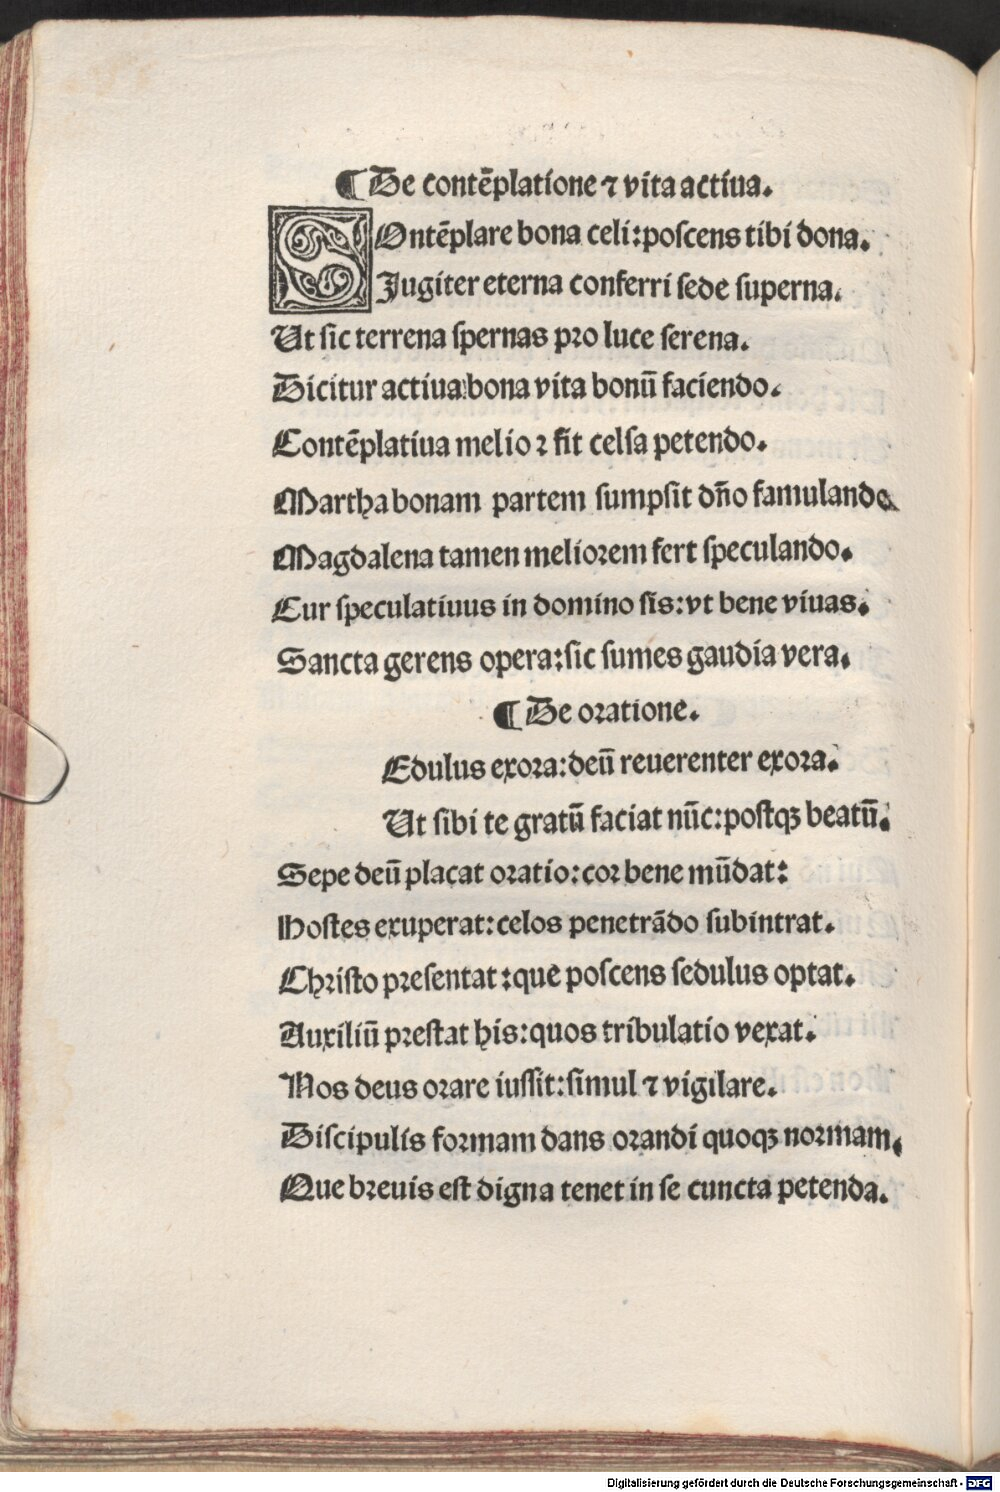 ¶ De contēplatione ⁊ vita actiua.
SOntēplare bona celi: poscens tibi dona.
Jugiter eterna conferri sede superna.
Ut sic terrena spernas pro luce serena.
Dicitur actiua: bona vita bonū faciendo.
Contēplatiua melior fit celsa petendo.
Martha bonam partem sumpsit dn̄o famulando.
Magdalena tamen meliorem fert speculando.
Cur speculatiuus in domino sis: vt bene viuas.
Sancta gerens opera: sic sumes gaudia vera.
¶ De oratione.
Edulus exora: deū reuerenter exora.
Ut sibi te gratū faciat nūc: postqꝫ beatū.
Sepe deū placat oratio: cor bene mūdat:
Hostes exuperat: celos penetrādo subintrat.
Christo presentat: que poscens sedulus optat.
Auxiliū prestat his: quos tribulatio vexat.
Nos deus orare iussit: simul ⁊ vigilare.
Discipulis formam dans orandi quoqꝫ normam.
Que breuis est digna tenet in se cuncta petenda.
Digitalisierung gefördert durch die Deutsche Forschungsgemeinschaft - DFG